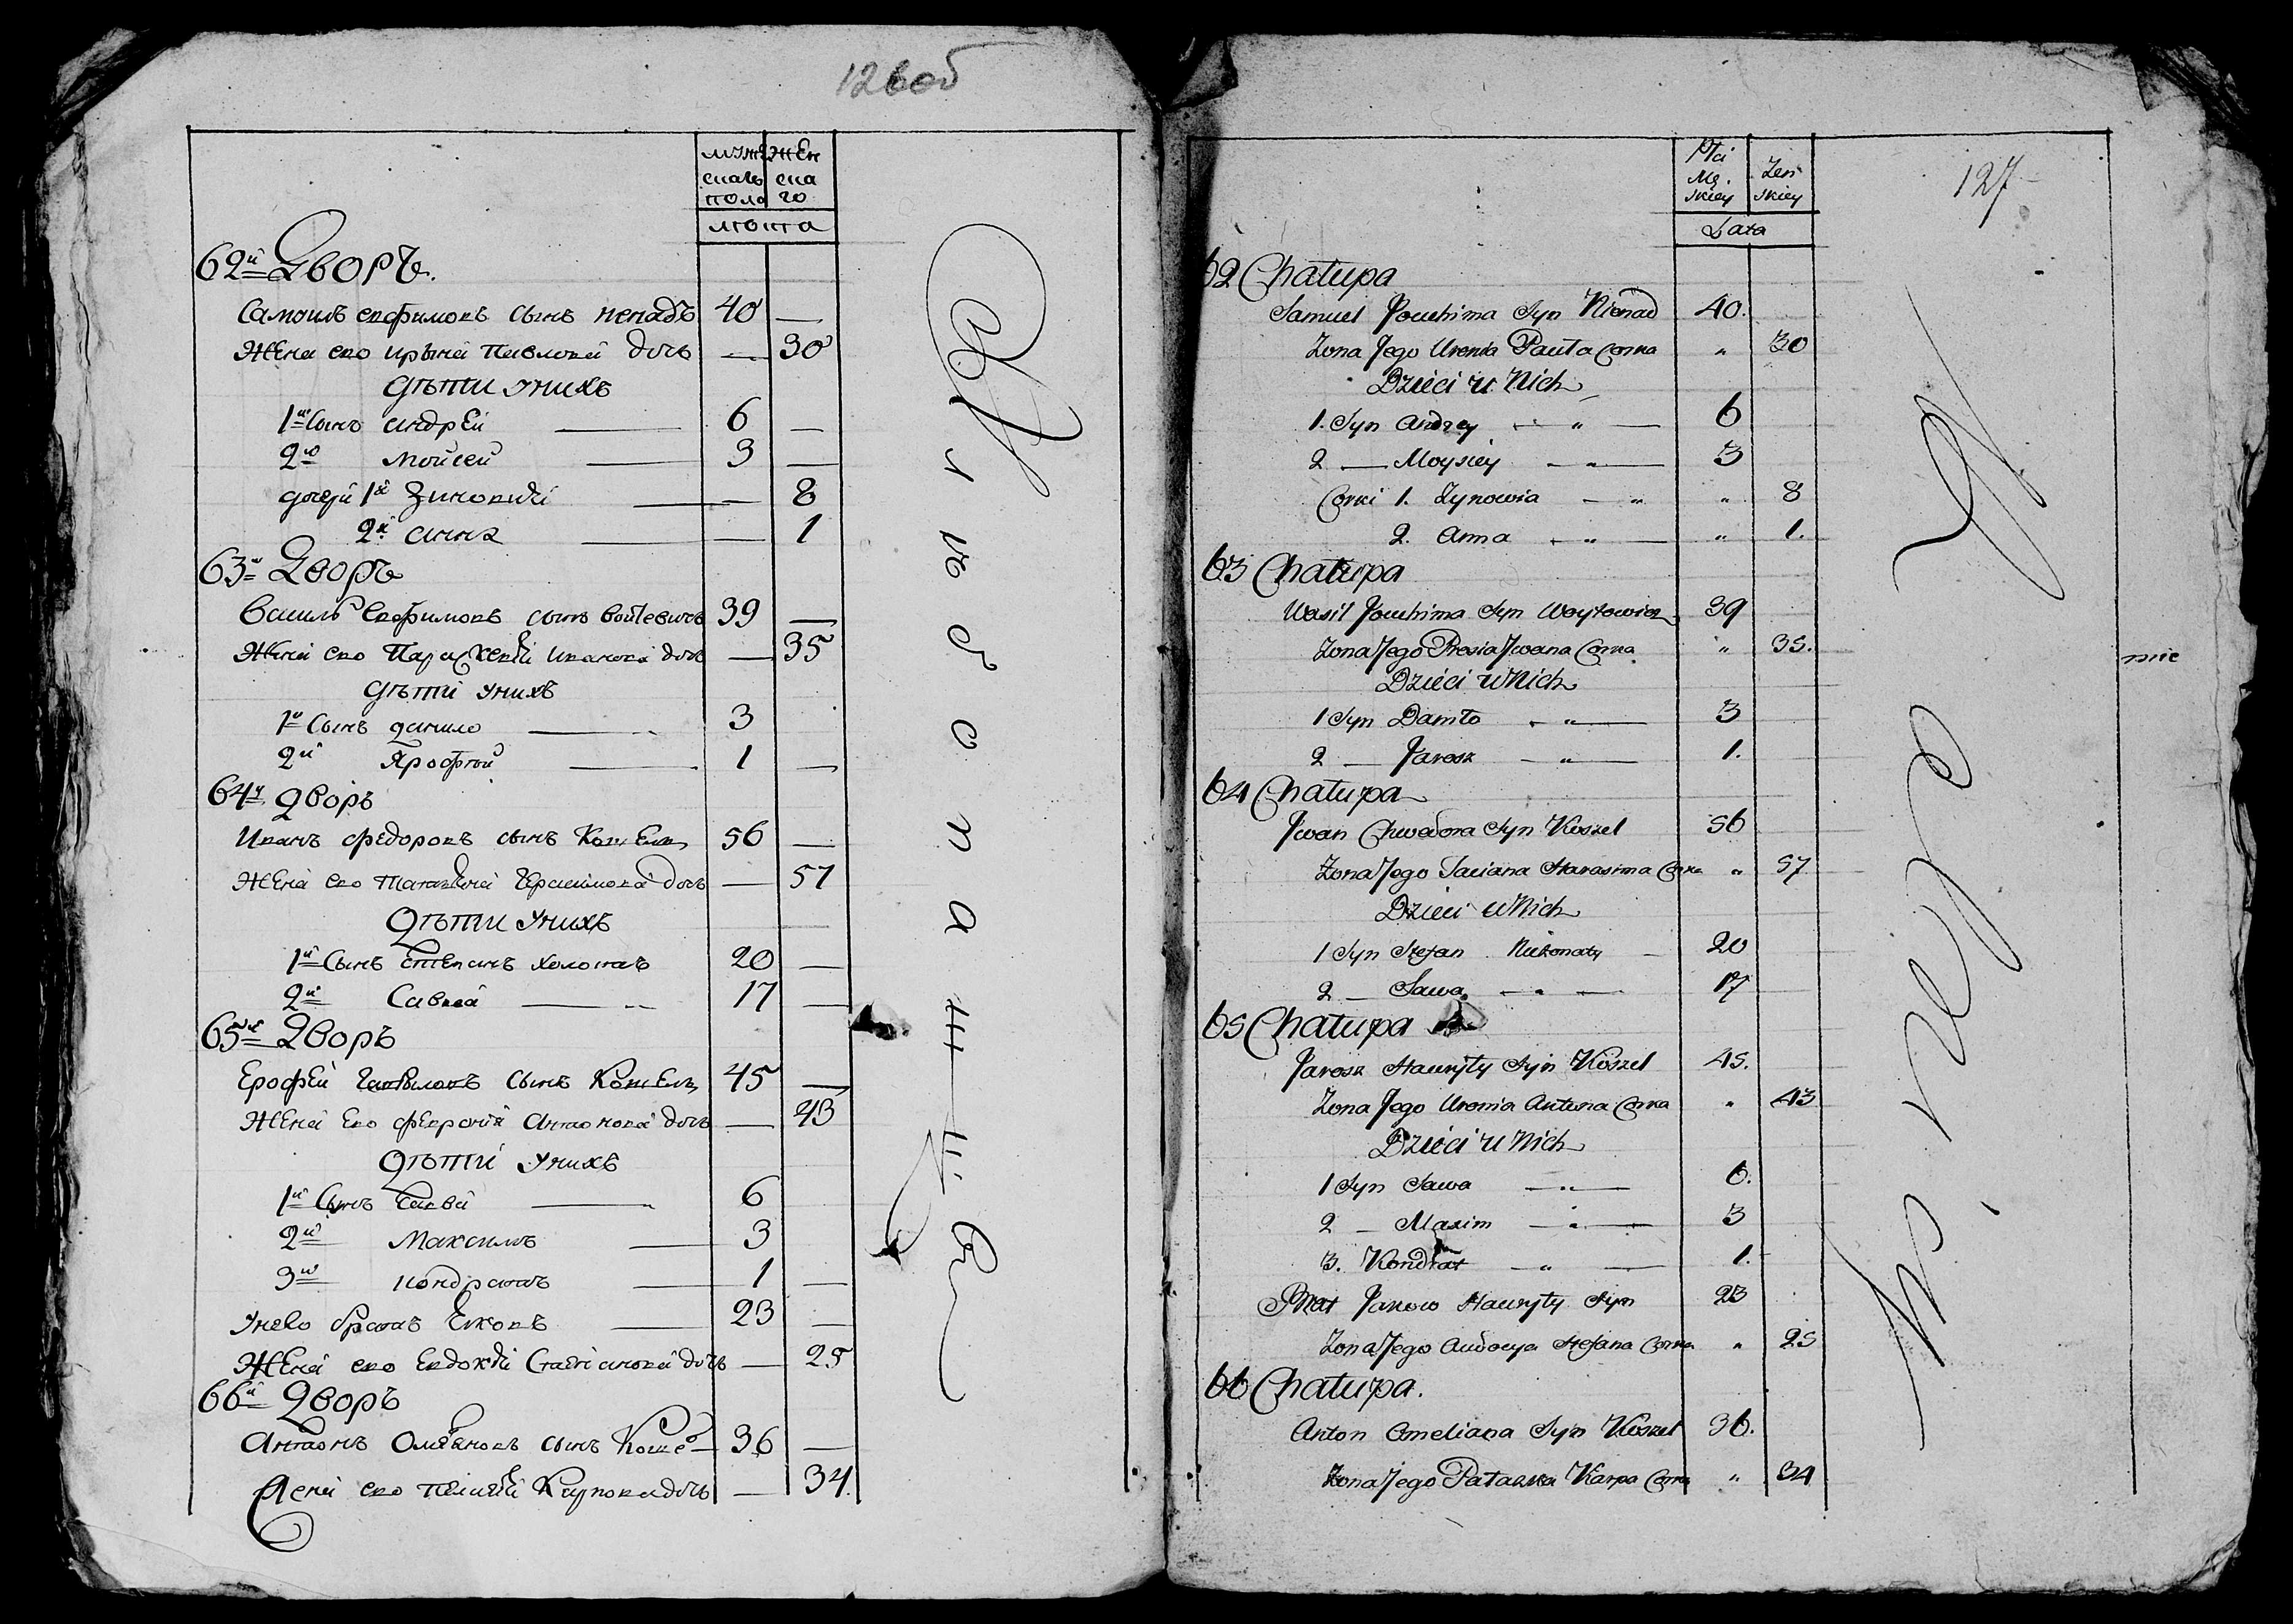 126об
мужескаго пола
женскаго
лѣта
62й Дворъ.
Самоилъ ефимовъ сынъ ненадъ 40 —
Жена ево ирына павлова дочь — 30
Дѣти униxъ
1й Сынъ андрей — 6 —
2й Мойсей — 3 —
дочери 1я Зиновия — 8
2я анна — 1
63й Дворъ
Василь Ефимовъ сынъ войтевичъ 39 —
Жена ево Парасковия иванова дочь — 35
Дѣти униxъ
1й Сынъ данило — 3
2й Ярофей — 1 —
64й Дворъ
Иванъ федоровъ сынъ Кошель 56 —
Жена ево татьяна Герасимова дочь — 57
Дѣти униxъ
1й Сынъ степанъ холостъ 20 —
2й Савва — 17 —
65й Дворъ
Ерофей гавриловъ сынъ Кошель 45 —
Жена Ево феврония антонова дочь — 43
Дѣти униxъ
1й Сынъ Савва — 6
2й Максимъ — 3
3й кондратъ — 1 —
унево братъ Яковъ — 23 —
Жена ево Евдокия Степанова дочь — 25
66й Дворъ
Антонъ Омельяновъ сынъ Коше — 36 —
Жена ево пелагия Карпова дочь — 34.
127
Płci Męskiey
Żenskiey
Lata
62 Chałupa
Samuel Jouchima Syn Nienad 40.
Żona Jego Urenia Pauła Corka " 30
Dzieci u Nich
1. Syn Andrey — " — 6
2 — Moysiey — " — 3
Corki 1. Zynowia — " " 8
2. Anna — " — " 1.
63 Chałupa
Wasil Jouchima Syn Woytowicz 39
Żona Jego Presia Jwana Corka " 35.
Dzieci u Nich
1 Syn Daniło — " — 3
2 — Jarosz — " — 1.
64 Chałupa
Jwan Chwedora Syn Koszel 56
Żona Jego Taciana Harasima Corka " 57
Dzieci u Nich
1 Syn Stefan Nieżonaty — 20
2 — Sawa — " — 17
65 Chałupa
Jarosz Hawryły Syn Koszel 45.
Żona Jego Urenia Antona Corka " 43
Dzieci u Nich
1 Syn Sawa — " — 6.
2 — Maxim — " — 3
3. Kondrat — " — 1.
Brat Jakow Hawryły Syn 23
Żona Jego Audocya Stefana Corka " 25
66 Chałupa.
Anton Omeliana Syn Koszel 36.
Żona Jego Pałaszka Karpa Corka " 34
nie